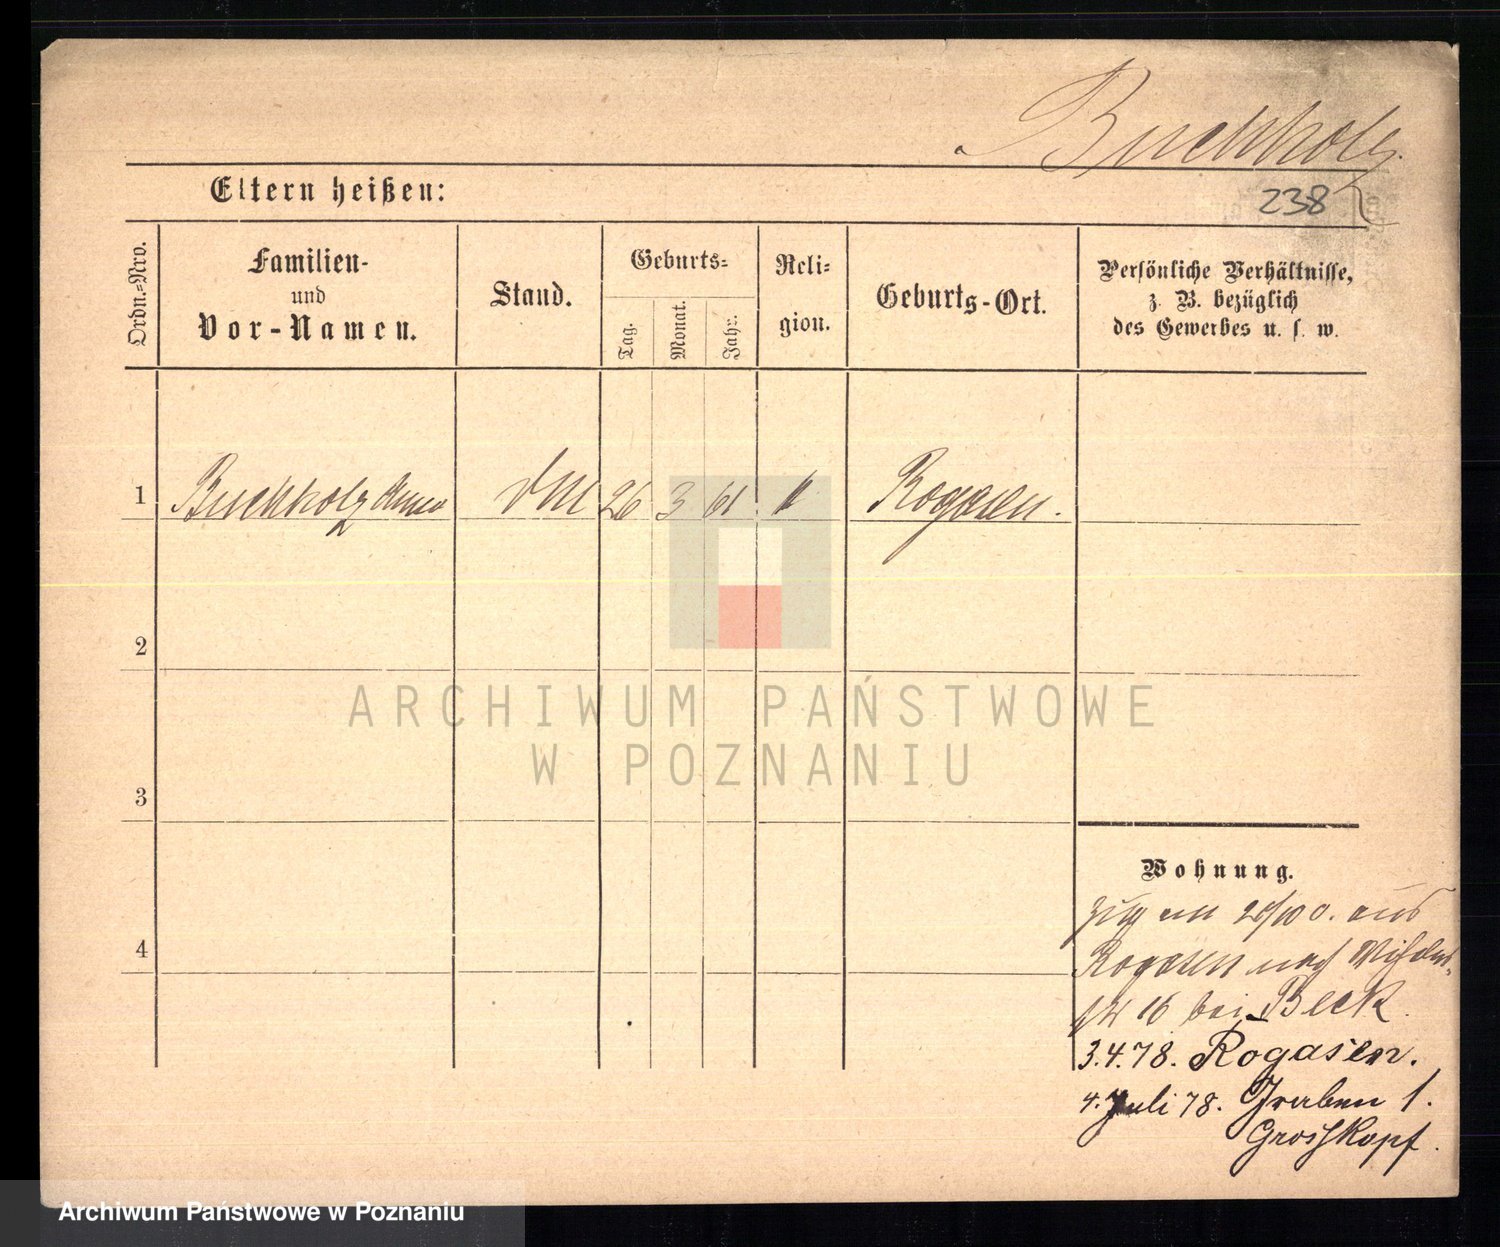 Buchholz.
238
Eltern heißen:
Ordn.=Nro.
Familien-
und
Vor-Namen.
Stand.
Geburts=
Tag.
Monat.
Jahr.
Reli=
gion.
Geburts-Ort.
Persönliche Verhältnisse,
z. B. bezüglich
des Gewerbes u. s. w.
1 Buchholz 26 3 61 Rogasen.
2
ARCHIWUM PAŃSTWOWE
W POZNANIU
3
Wohnung.
aus
4
Rogasen nach
16 bei Beck.
3.4.78. Rogasen.
4. Juli 78. Graben 1.
Grosskopf.
Archiwum Państwowe w Poznaniu